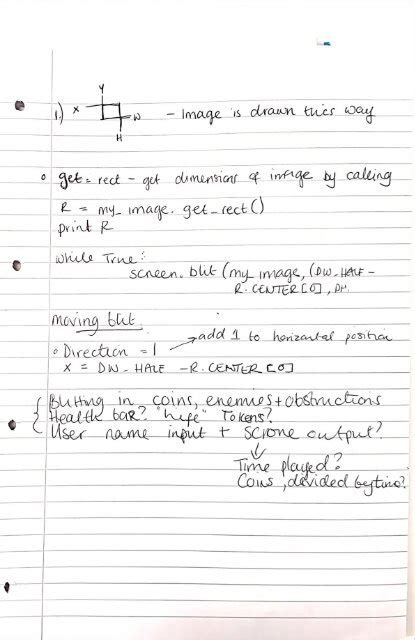 Y
1.) X W - Image is drawn this way
H
get_rect - get dimensions of image by calling
R = my_image.get_rect()
print R
while True:
screen.blit (my_image, (DW_HALF -
R.CENTER[0], DH
moving blit
Direction = 1 → add 1 to horizontal position
X = DW_HALF - R.CENTER[0]
Blitting in coins, enemies + obstructions
Health bar? "Life" Tokens?
User name input + score output?
↓
Time played?
Coins, divided by time?